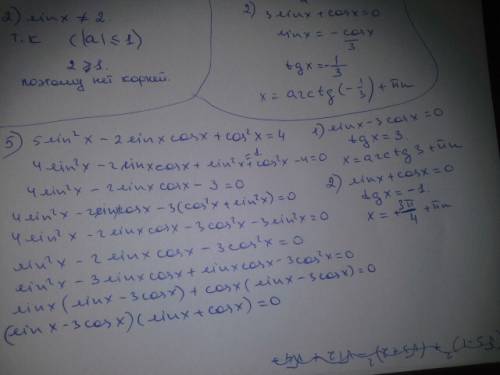 2) sinx ≠ 2.
т.к (|a| ≤ 1)
2 ≥ 1.
поэтому нет корней.
2) 3 sinx + cosx = 0
sinx = - cosx/3
tgx = - 1/3
x = arctg(- 1/3) + πn
5) 5 sin²x - 2 sinx cosx + cos²x = 4
4 sin²x - 2 sinx cosx + sin²x + cos²x - 4 = 0
=1
4 sin²x - 2 sinx cosx - 3 = 0
4 sin²x - 2 sinx cosx - 3(cos²x + sin²x) = 0
4 sin²x - 2 sinx cosx - 3cos²x - 3 sin²x = 0
sin²x - 2 sinx cosx - 3cos²x = 0
sin²x - 3 sinx cosx + sinx cosx - 3cos²x = 0
sinx (sinx - 3cosx) + cosx (sinx - 3cosx) = 0
(sinx - 3cosx)(sinx + cosx) = 0
1) sinx - 3cosx = 0
tgx = 3.
x = arctg 3 + πn
2) sinx + cosx = 0
tgx = -1.
x = + 3π/4 + πn